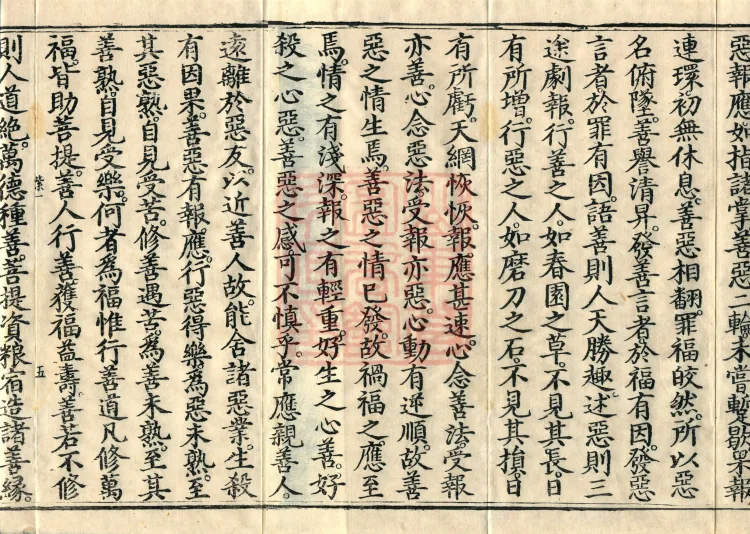 惡報應如指諸掌善惡二輪未嘗暫歇果報
連環。初無休息。善惡相翻。罪福皎然。所以惡
名俯墜。善譽清昇。發善言者。於福有因。發惡
言者。於罪有因。語善則人天勝趣。述惡則三
途劇報。行善之人。如春園之草。不見其長。日
有所增。行惡之人。如磨刀之石。不見其損。日
有所虧。天網恢恢。報應甚速。心念善法。受報
亦善。心念惡法。受報亦惡。心動有逆順。故善
惡之情生焉。善惡之情已發。故禍福之應至
焉。情之有淺深。報之有輕重。好生之心善。好
殺之心惡。善惡之感。可不慎乎。常應親善人。
遠離於惡友。以近善人故。能舍諸惡業。生殺
有因果。善惡有報應。行惡得樂。為惡未熟。至
其惡熟。自見受苦。修善遇苦。為善未熟。至其
善熟。自見受樂。何者為福。惟行善道。凡修萬
福。皆助菩提。善人行善。獲福益壽。善若不修
業一
五
則人道絕。萬德種善。菩提資粮。宿造諸善緣。